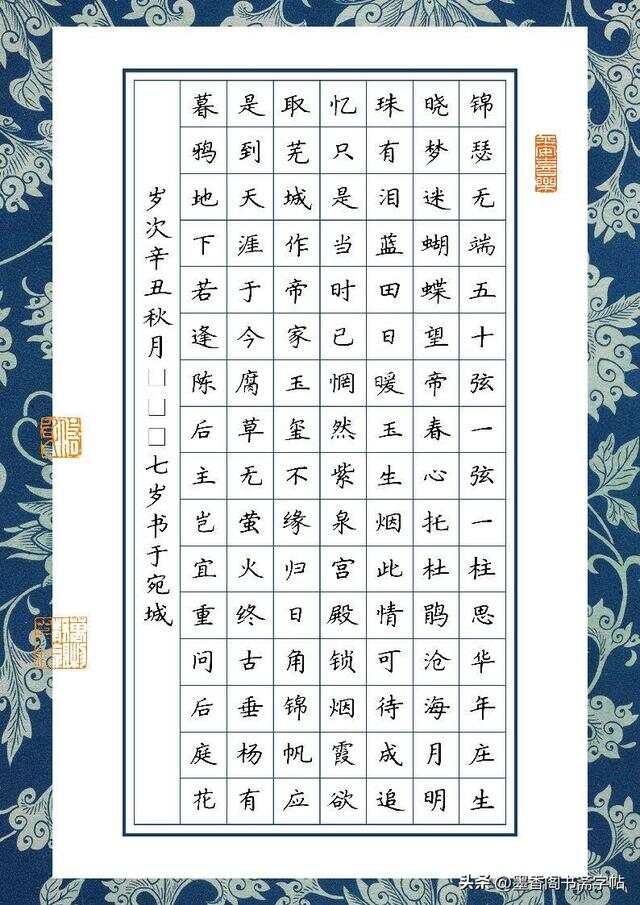 锦瑟无端五十弦一弦一柱思华年庄生
晓梦迷蝴蝶望帝春心托杜鹃沧海月明
珠有泪蓝田日暖玉生烟此情可待成追
忆只是当时已惘然紫泉宫殿锁烟霞欲
取芜城作帝家玉玺不缘归日角锦帆应
是到天涯于今腐草无萤火终古垂杨有
暮鸦地下若逢陈后主岂宜重问后庭花
岁次辛丑秋月□□□七岁书于宛城
头条@墨香阁书斋字帖